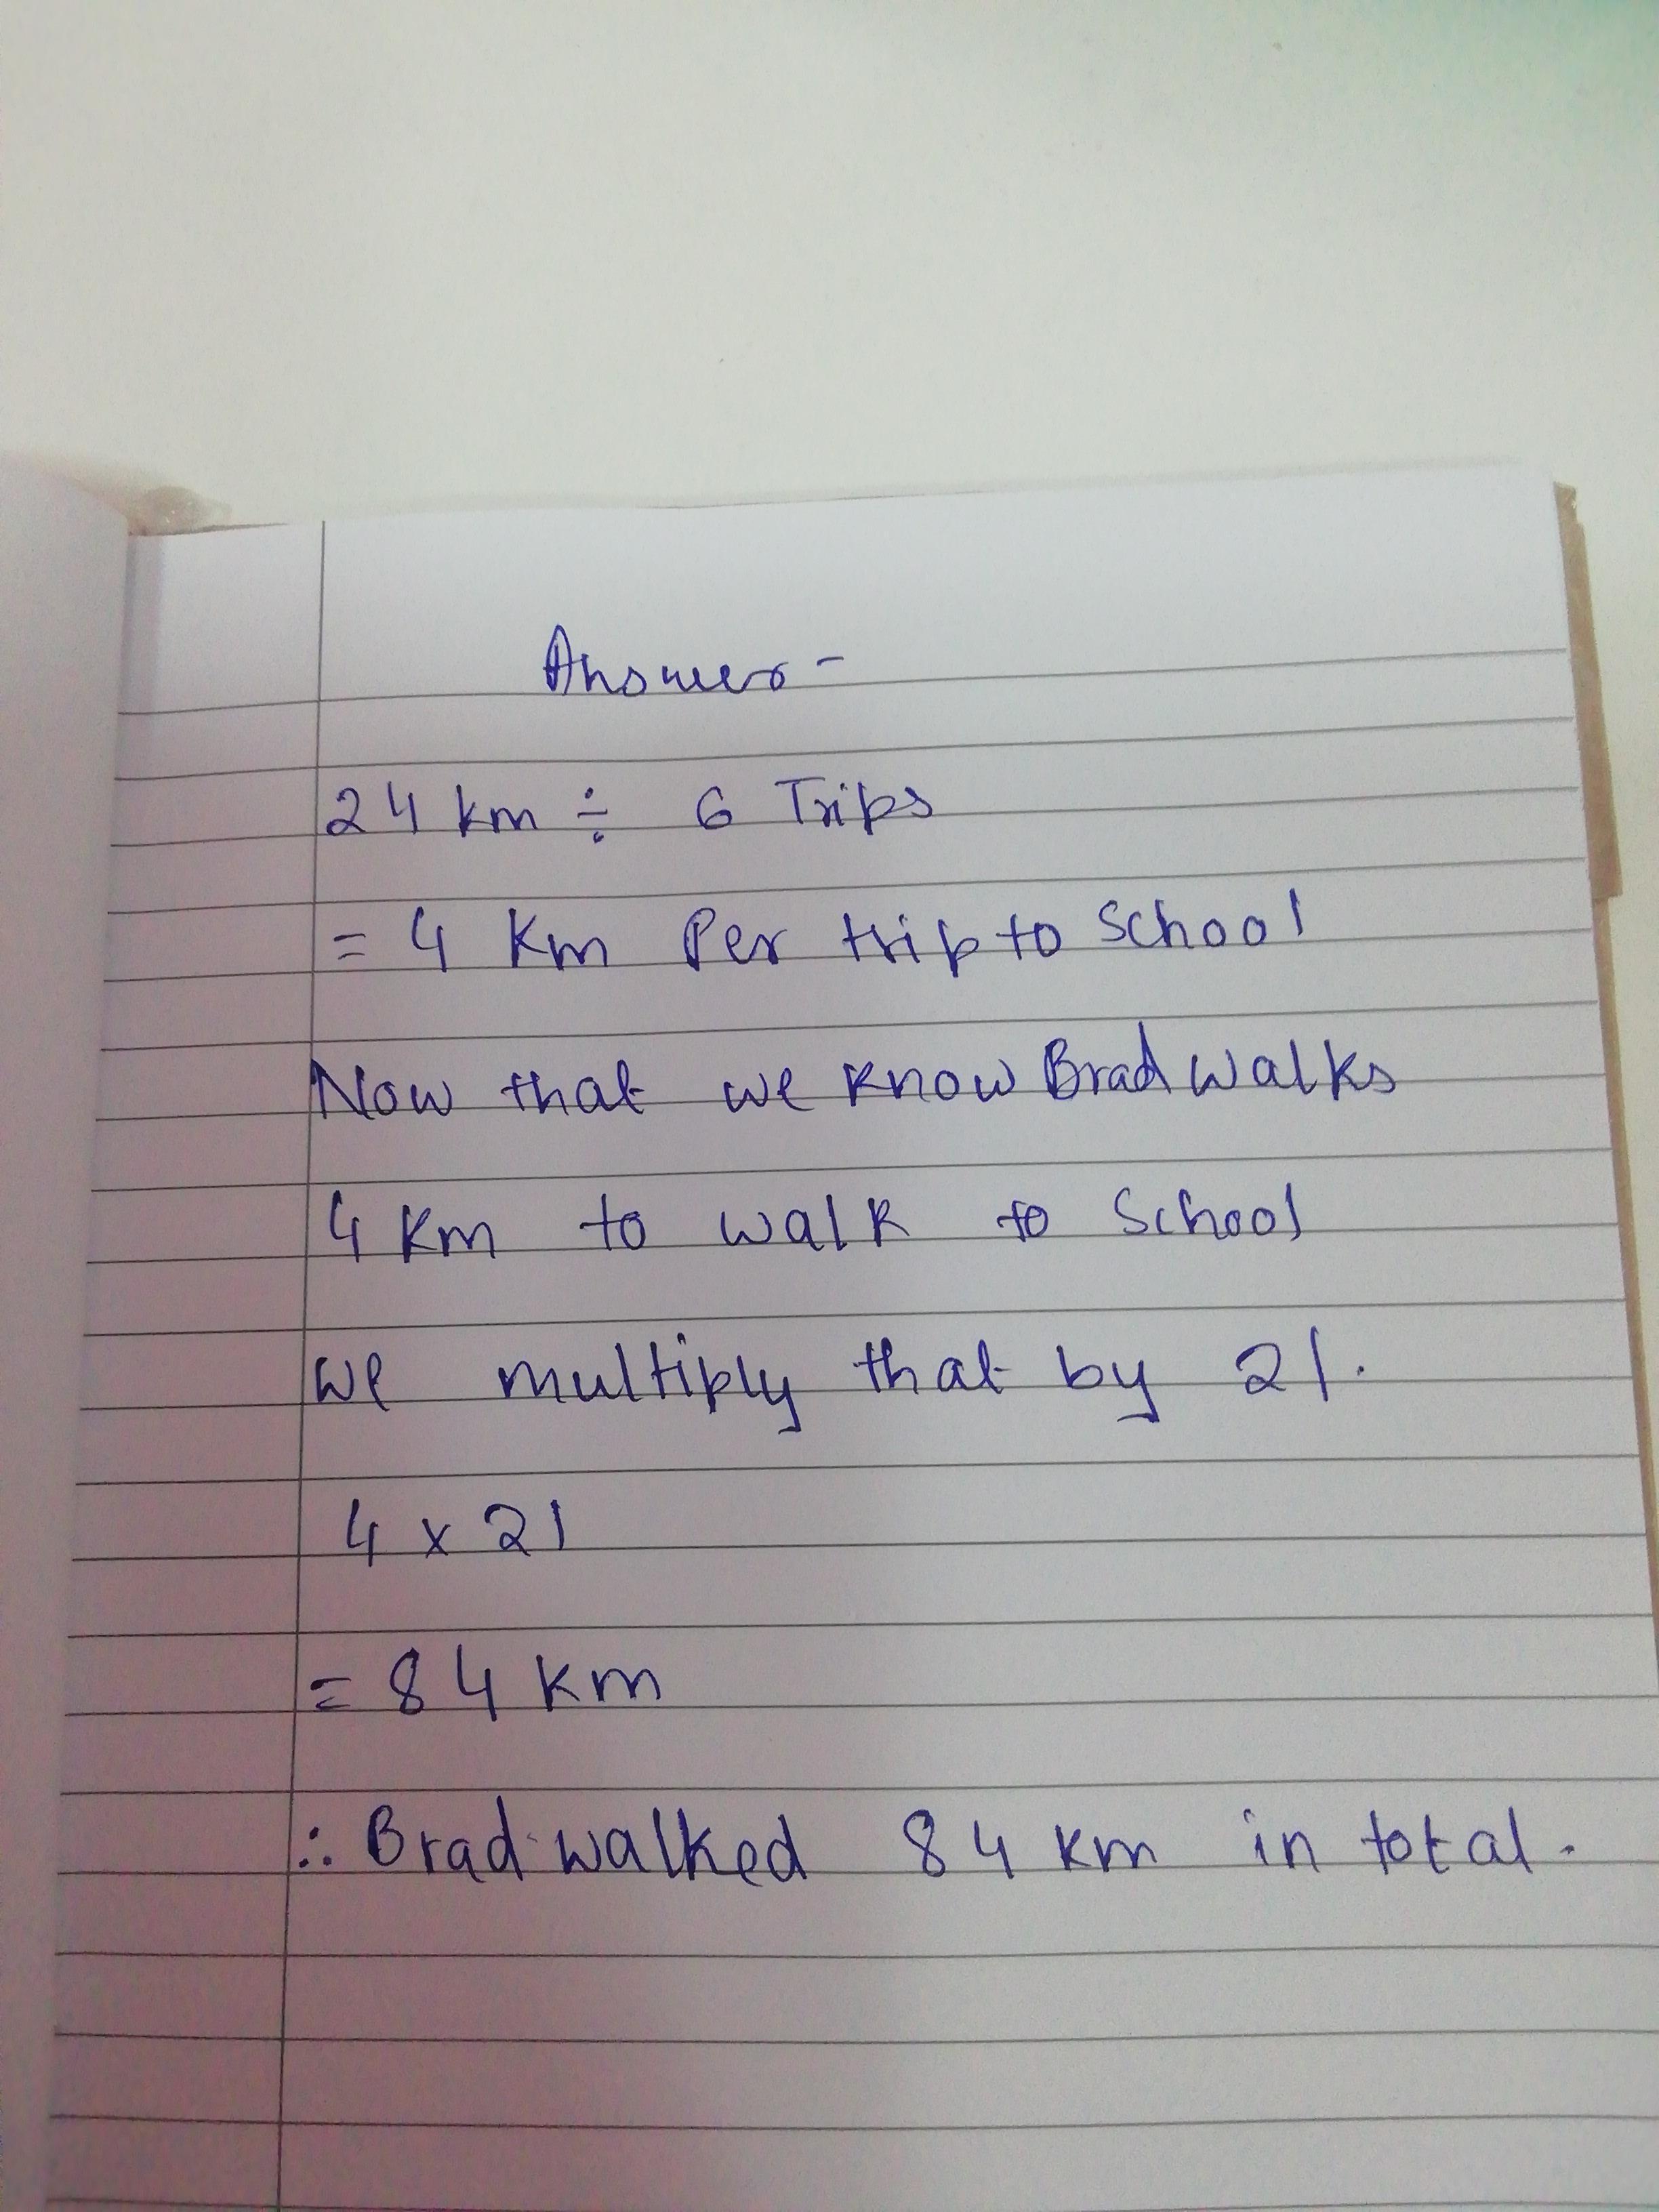 Answer -
24 km ÷ 6 Trips
= 4 Km Per trip to School
Now that we know Brad walks
4 Km to walk to School
we multiply that by 21.
4 x 21
= 84 km
∴ Brad walked 84 km in total.